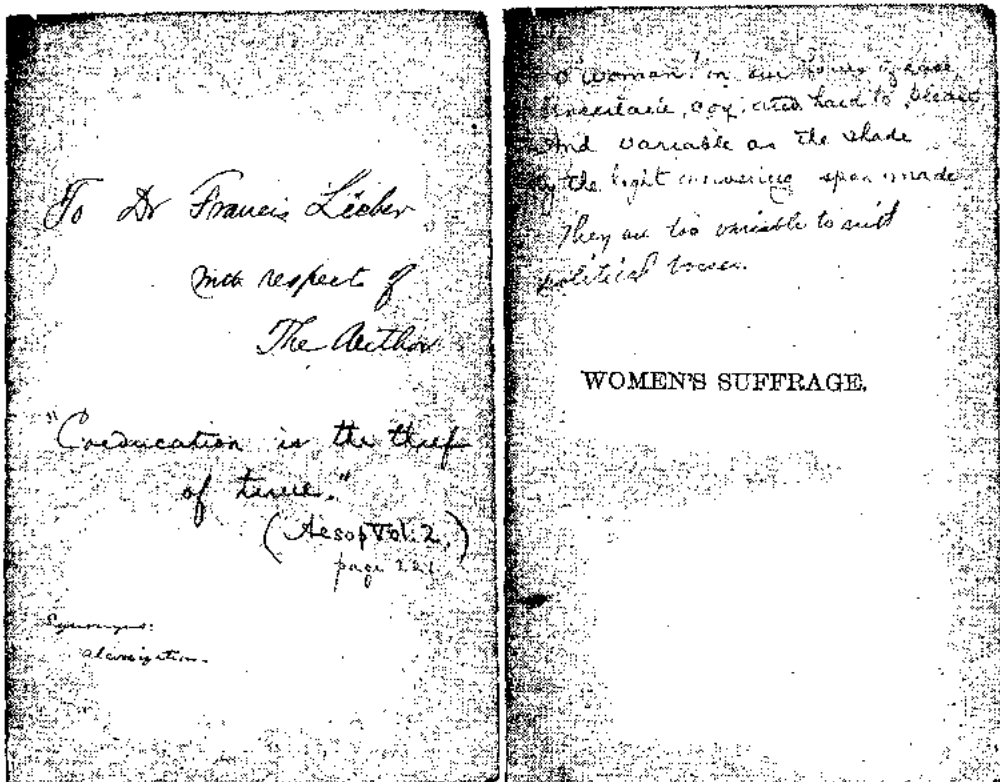 To Dr Francis Lieber
with respect of
The Author
"Coeducation is the thief
of time."
(Aesop Vol: 2.)
page
Synonyms:
O woman! in our hours of ease,
Uncertain, coy, and hard to please,
And variable as the shade
By the light quivering aspen made
They are too variable to suit
political
WOMEN'S SUFFRAGE.